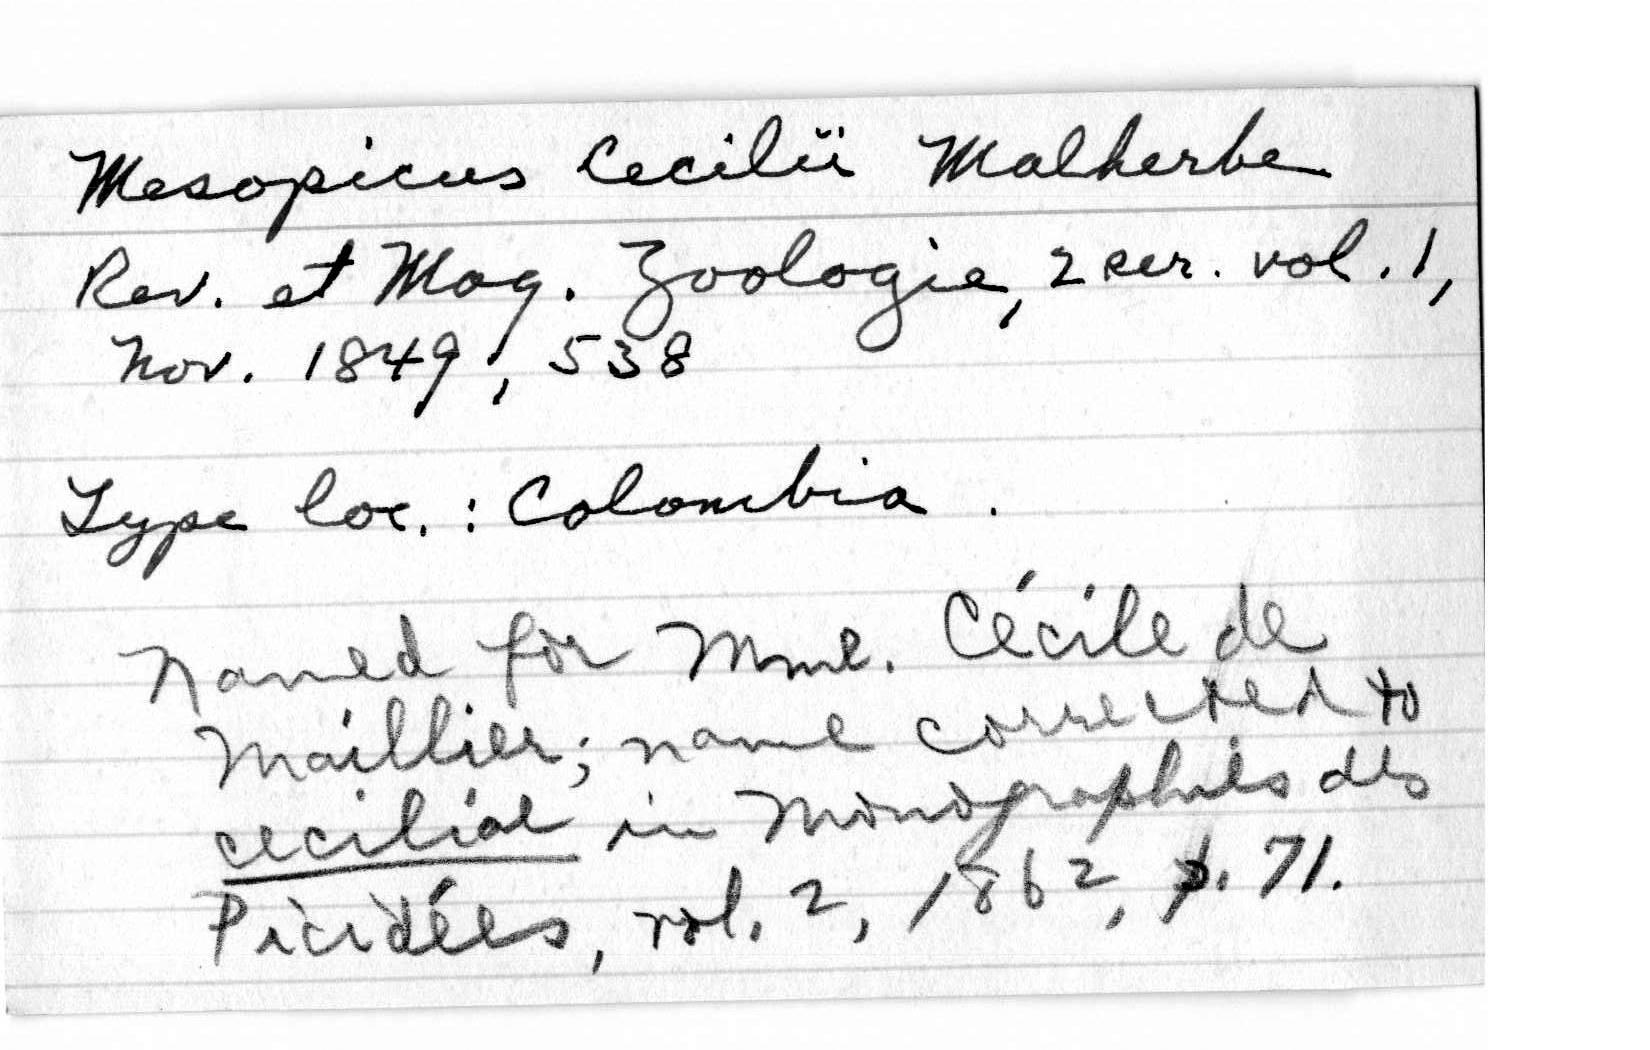 Mesopicus Cecilii Malherbe
Rev. et Mag. Zoologie, 2 ser. vol. 1,
Nov. 1849, 538
Type loc. : Colombia.
Named for Mme. Cécile de
Maillier; name corrected to
ceciliae in Monographies des
Picidées, vol. 2, 1862, p. 71.